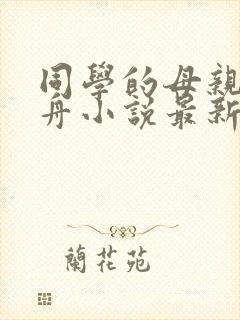 同學的母親
舟小說最新
蘭花苑